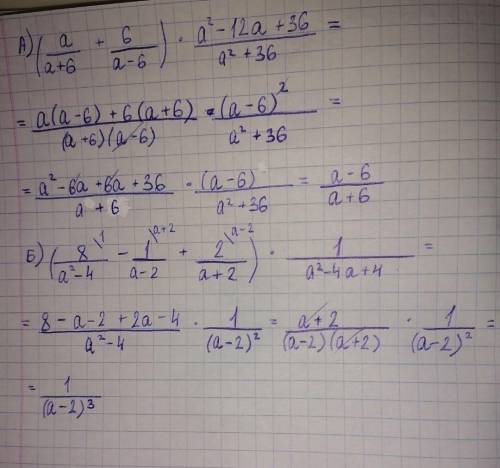 А) (a/(a+6) + 6/(a-6)) · (a² - 12a + 36)/(a² + 36) =
= (a(a-6) + 6(a+6))/((a+6)(a-6)) · (a-6)²/(a² + 36) =
= (a² - 6a + 6a + 36)/(a + 6) · (a-6)/(a² + 36) = (a-6)/(a+6)
Б) (8\1/(a²-4) - 1\a+2/(a-2) + 2\a-2/(a+2)) · 1/(a²-4a+4) =
= (8 - a - 2 + 2a - 4)/(a² - 4) · 1/(a-2)² = (a+2)/((a-2)(a+2)) · 1/(a-2)² =
= 1/(a-2)³